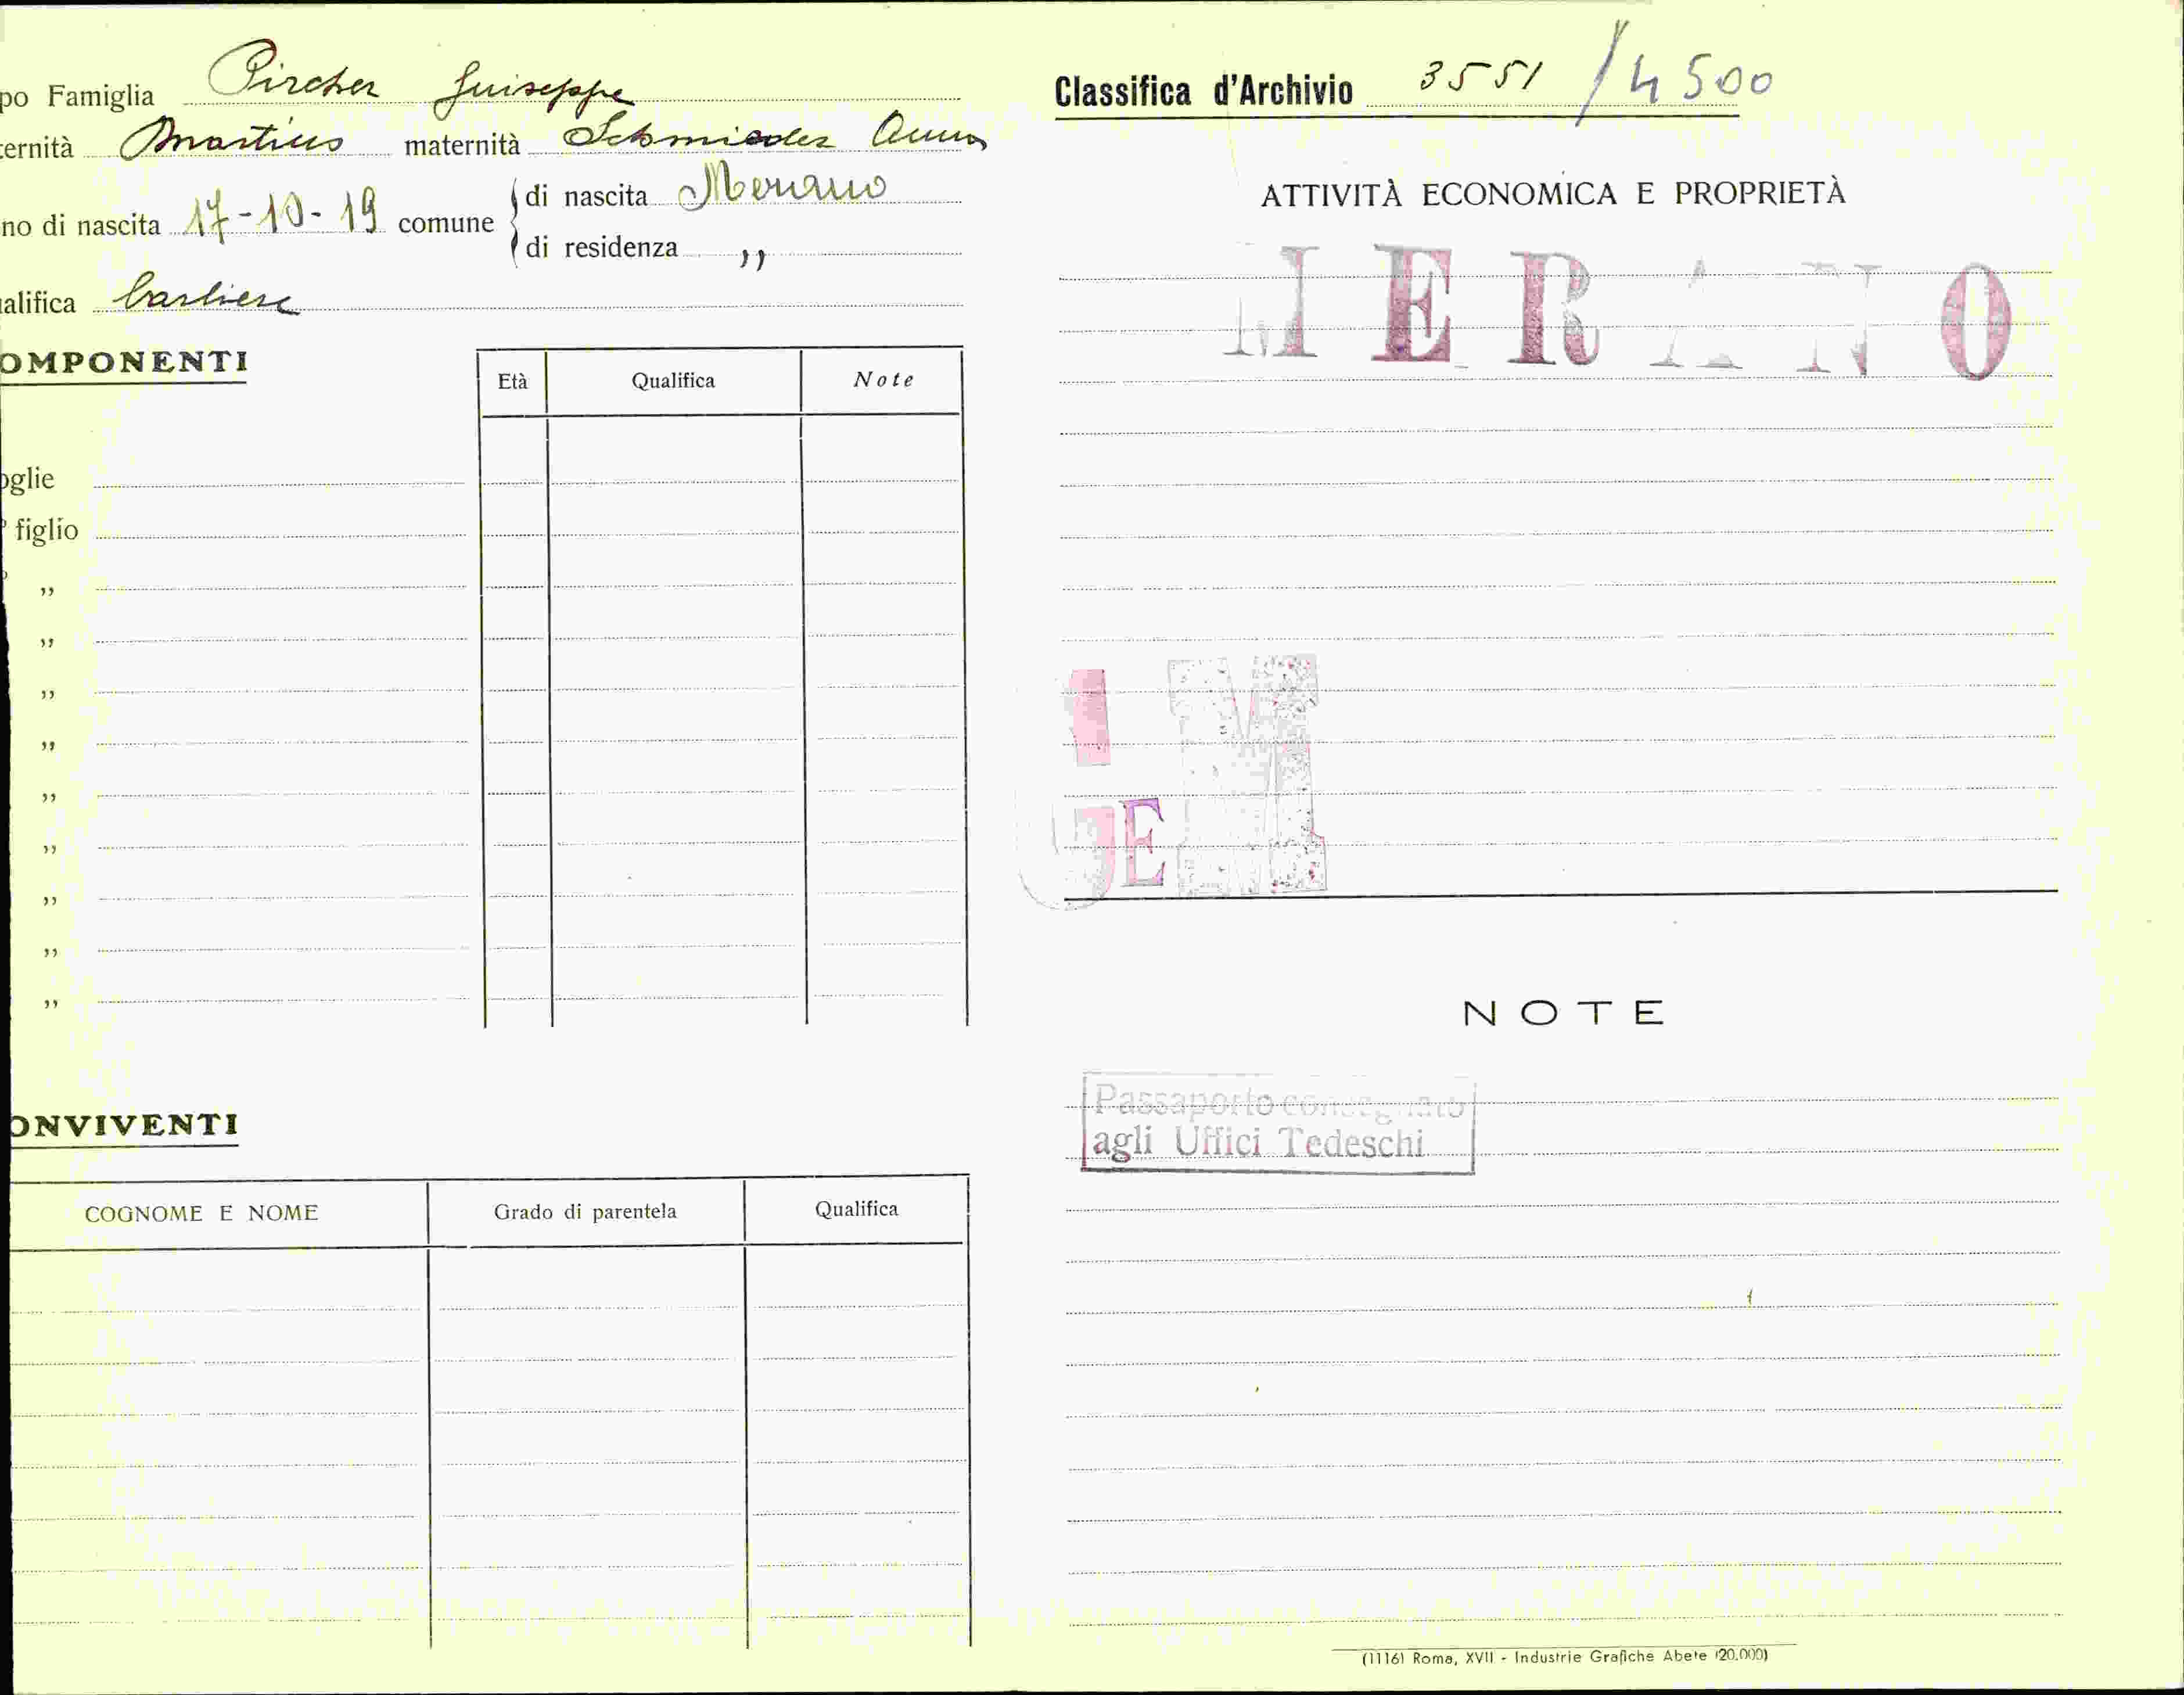 po Famiglia Pircher Guiseppe
ternità Martino maternità Anna
no di nascita 17-10-19 comune di nascita Merano
di residenza ,,
alifica barbiere
OMPONENTI
Età Qualifica Note
oglie
figlio
,,
,,
,,
,,
,,
,,
,,
,,
,,
ONVIVENTI
COGNOME E NOME Grado di parentela Qualifica
Classifica d'Archivio 3551 / 4500
ATTIVITÀ ECONOMICA E PROPRIETÀ
MERANO
E
NOTE
Passaporto consegnato
agli Uffici Tedeschi
(1116) Roma, XVII - Industrie Grafiche Abete (20.000)